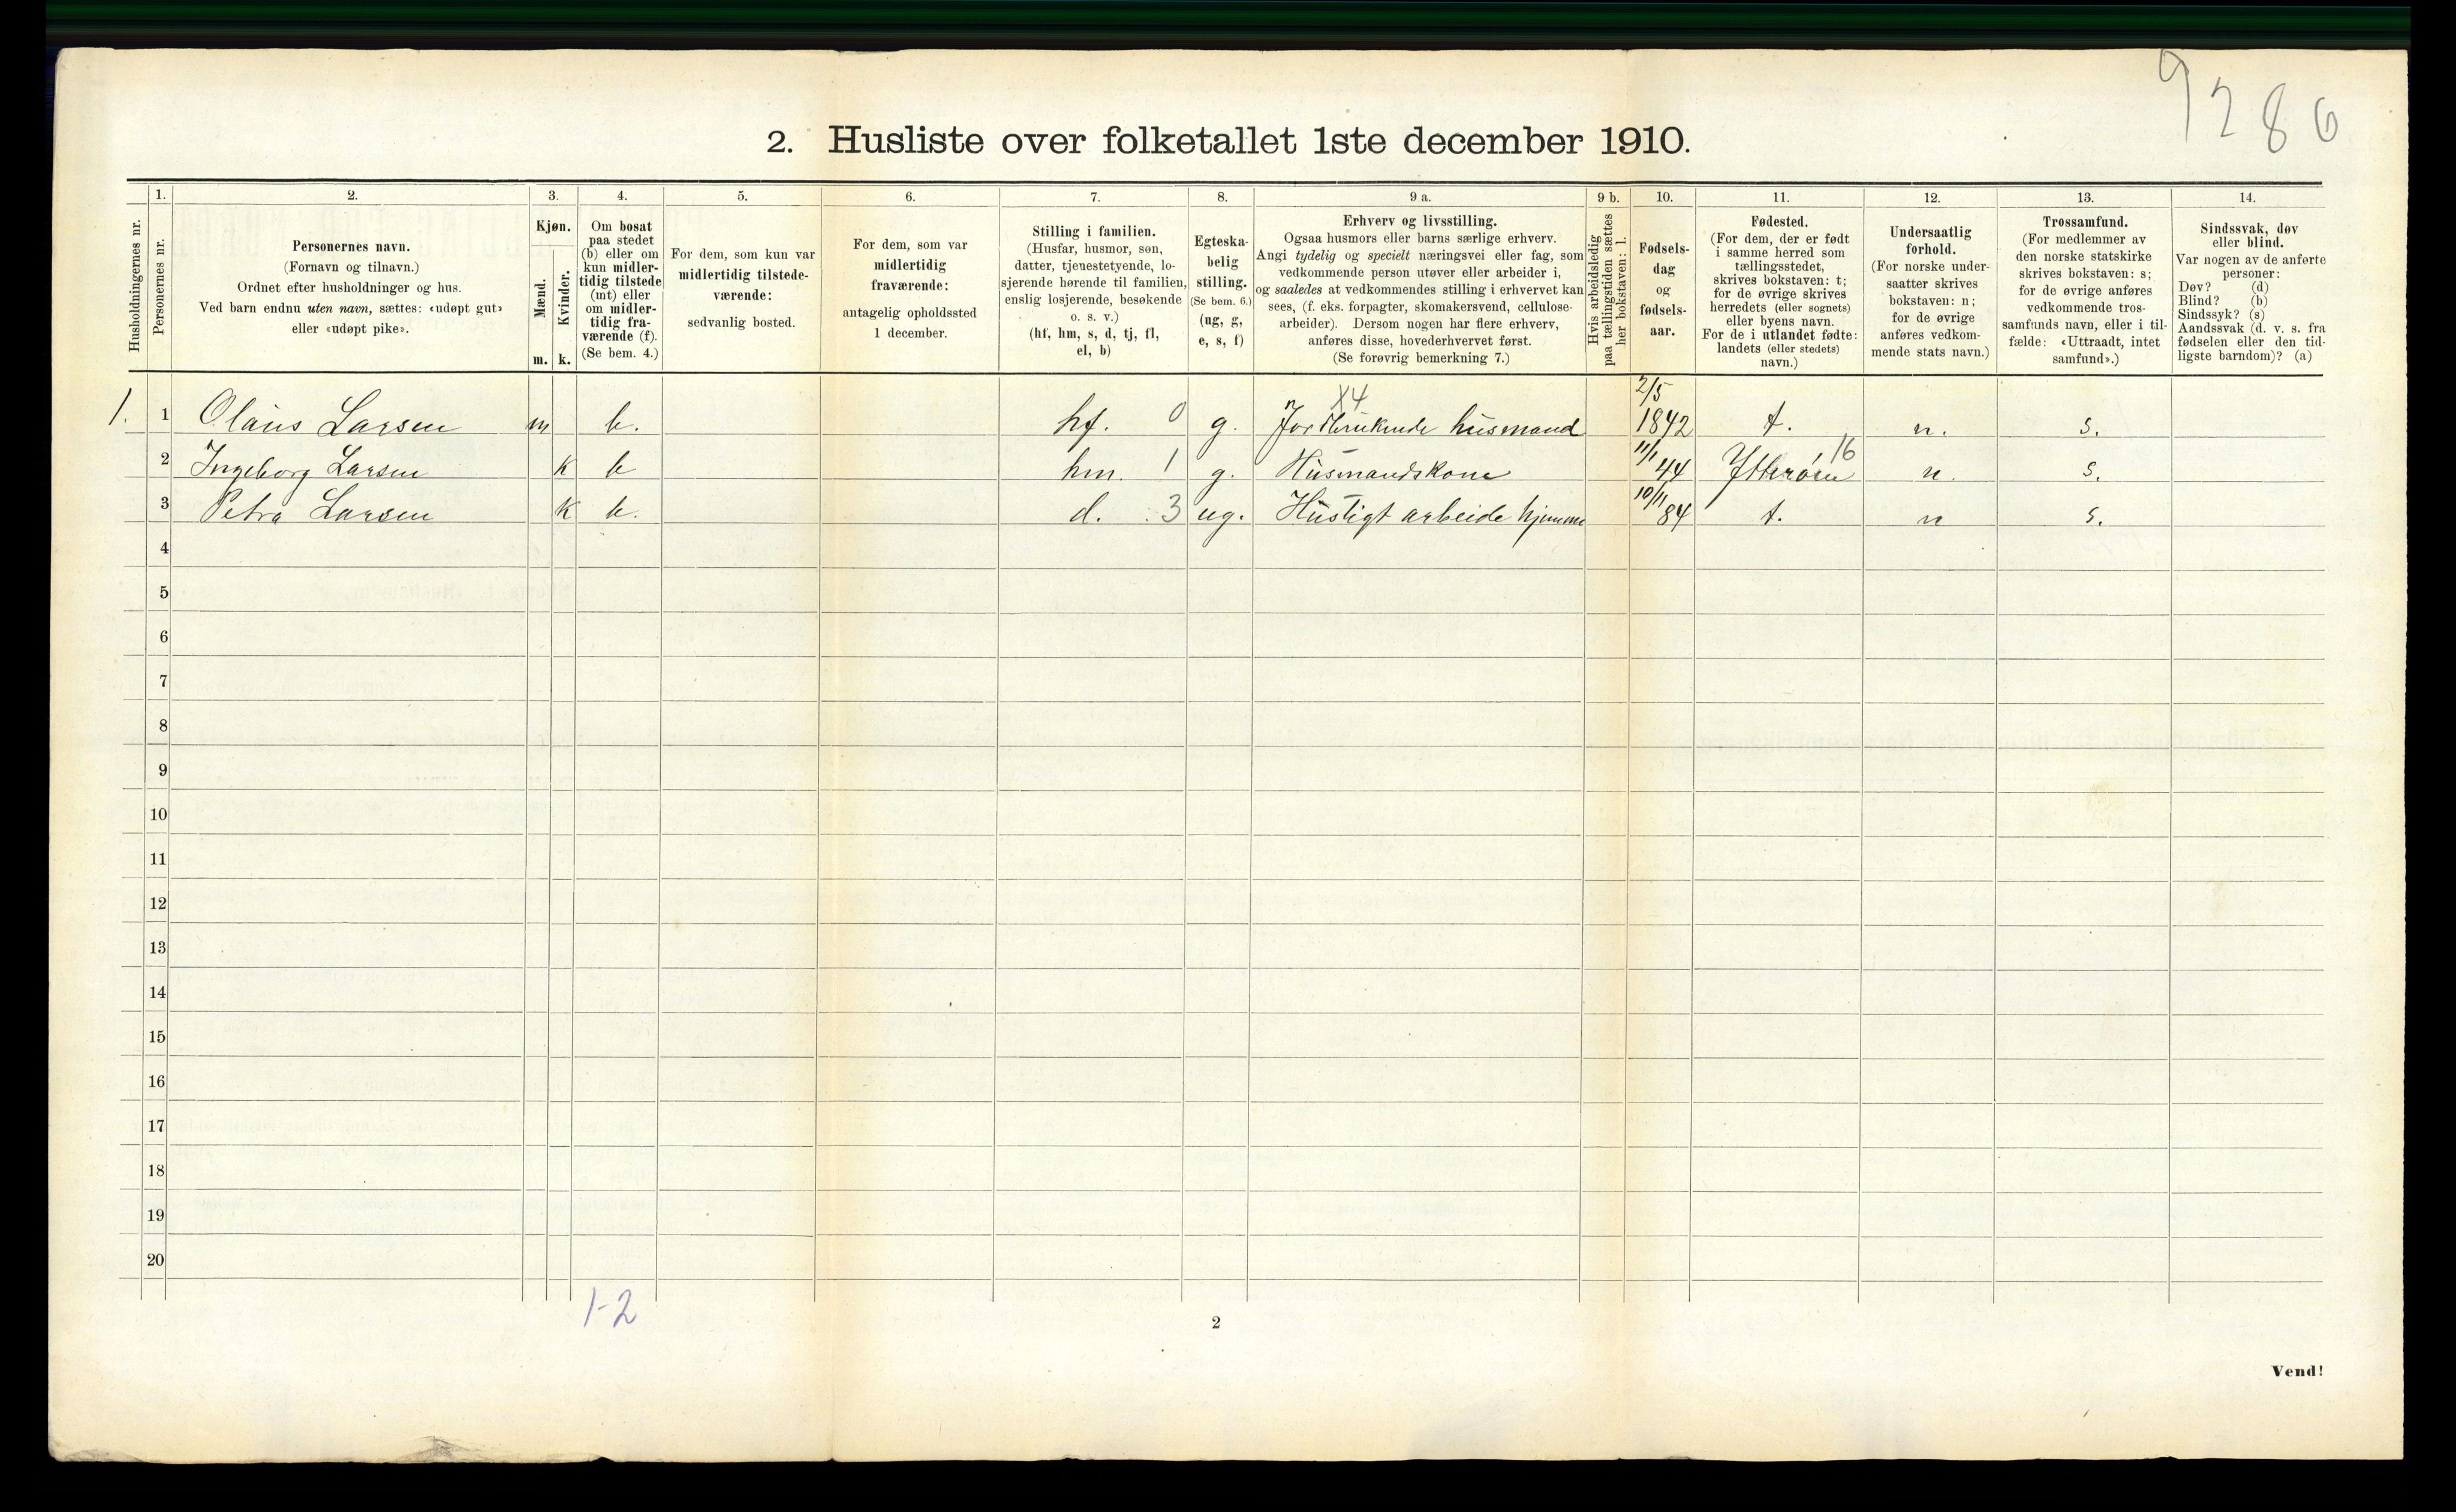 9286
2. Husliste over folketallet 1ste december 1910.
1. 2. 3. 4. 5. 6. 7. 8. 9 a. 9 b. 10. 11. 12. 13. 14.
Husholdningernes nr.
Personernes nr.
Personernes navn.
(Fornavn og tilnavn.)
Ordnet efter husholdninger og hus.
Ved barn endnu uten navn, sættes: «udøpt gut»
eller «udøpt pike».
Kjøn.
Mænd.
Kvinder.
m. k.
Om bosat
paa stedet
(b) eller om
kun midler-
tidig tilstede
(mt) eller
om midler-
tidig fra-
værende (f).
(Se bem. 4.)
For dem, som kun var
midlertidig tilstede-
værende:
sedvanlig bosted.
For dem, som var
midlertidig
fraværende:
antagelig opholdssted
1 december.
Stilling i familien.
(Husfar, husmor, søn,
datter, tjenestetyende, lo-
sjerende hørende til familien,
enslig losjerende, besøkende
o. s. v.)
(hf, hm, s, d, tj, fl,
el, b)
Egteska-
belig
stilling.
(Se bem. 6.)
(ug, g,
e, s, f)
Erhverv og livsstilling.
Ogsaa husmors eller barns særlige erhverv.
Angi tydelig og specielt næringsvei eller fag, som
vedkommende person utøver eller arbeider i,
og saaledes at vedkommendes stilling i erhvervet kan
sees, (f. eks. forpagter, skomakersvend, cellulose-
arbeider). Dersom nogen har flere erhverv,
anføres disse, hovederhvervet først.
(Se forøvrig bemerkning 7.)
Hvis arbeidsledig
paa tællingstiden sættes
her bokstaven: l.
Fødsels-
dag
og
fødsels-
aar.
Fødested.
(For dem, der er født
i samme herred som
tællingsstedet,
skrives bokstaven: t;
for de øvrige skrives
herredets (eller sognets)
eller byens navn.
For de i utlandet fødte:
landets (eller stedets)
navn.)
Undersaatlig
forhold.
(For norske under-
saatter skrives
bokstaven: n;
for de øvrige
anføres vedkom-
mende stats navn.)
Trossamfund.
(For medlemmer av
den norske statskirke
skrives bokstaven: s;
for de øvrige anføres
vedkommende tros-
samfunds navn, eller i til-
fælde: «Uttraadt, intet
samfund».)
Sindssvak, døv
eller blind.
Var nogen av de anførte
personer:
Døv? (d)
Blind? (b)
Sindssyk? (s)
Aandssvak (d. v. s. fra
fødselen eller den tid-
ligste barndom)? (a)
X4 2/5
1. 1 Olaus Larsen m b. hf. 0 g. Jordbrukende husmand 1842 t. n. s.
2 Ingeborg Larsen k b hm. 1 g. Husmandskone 11/1 44 Ytterøen 16 n. s.
3 Petra Larsen k b. d. 3 ug. Husligt arbeide hjemme 10/11 84 t. n s.
4
5
6
7
8
9
10
11
12
13
14
15
16
17
18
19
20
1-2
2
Vend!